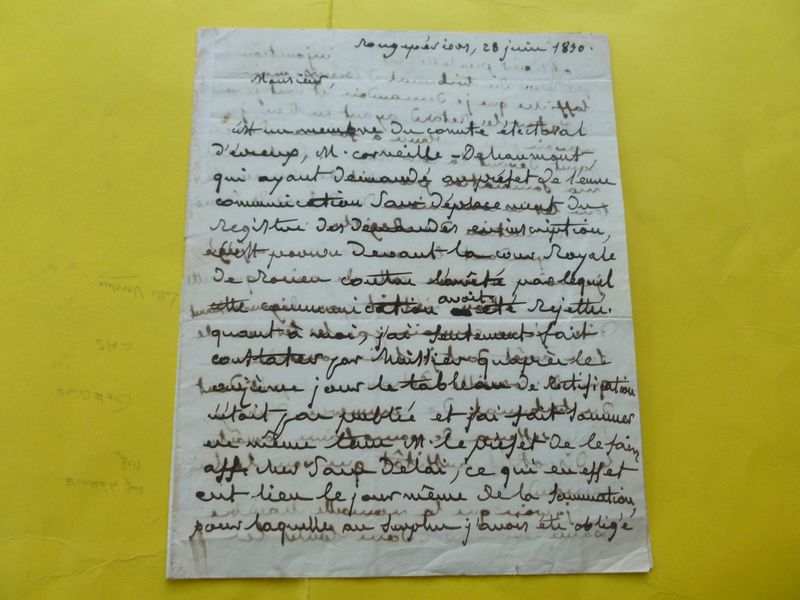 Rougepériers, 28 juin 1830.
Monsieur,
c'est un membre du comité électoral
d'évreux, M. corneille-Dehaumont,
qui ayant demandé au préfet de l'eure
communication sans déplacement du
registre des demandes en inscription,
s'est pourvu devant la cour Royale
de Rouen contre l'arrêté par lequel
cette communication avait été rejettée.
quant à moi, j'ai seulement fait
constater par huissier qu'après le
onzième jour le tableau de rectification
n'était pas publié et j'ai fait sommer
en même tems M. le préfet de le faire
afficher sans délai, ce qui en effet
eut lieu le jour même de la sommation,
pour laquelle au surplus j'avois été obligé